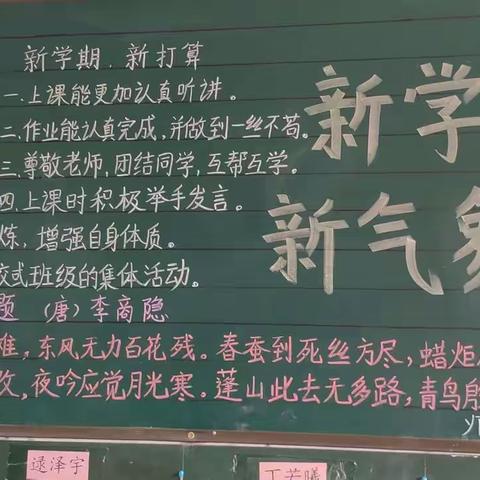 新学期.新打算
一.上课能更加认真听讲。
二.作业能认真完成,并做到一丝不苟。
三.尊敬老师,团结同学,互帮互学。
四.上课时积极举手发言。
炼,增强自身体质。
班级的集体活动。
题 (唐)李商隐
难,东风无力百花残。春蚕到死丝方尽,蜡炬
,夜吟应觉月光寒。蓬山此去无多路,青鸟殷
新学
新气象
逯泽宇
丁若曦